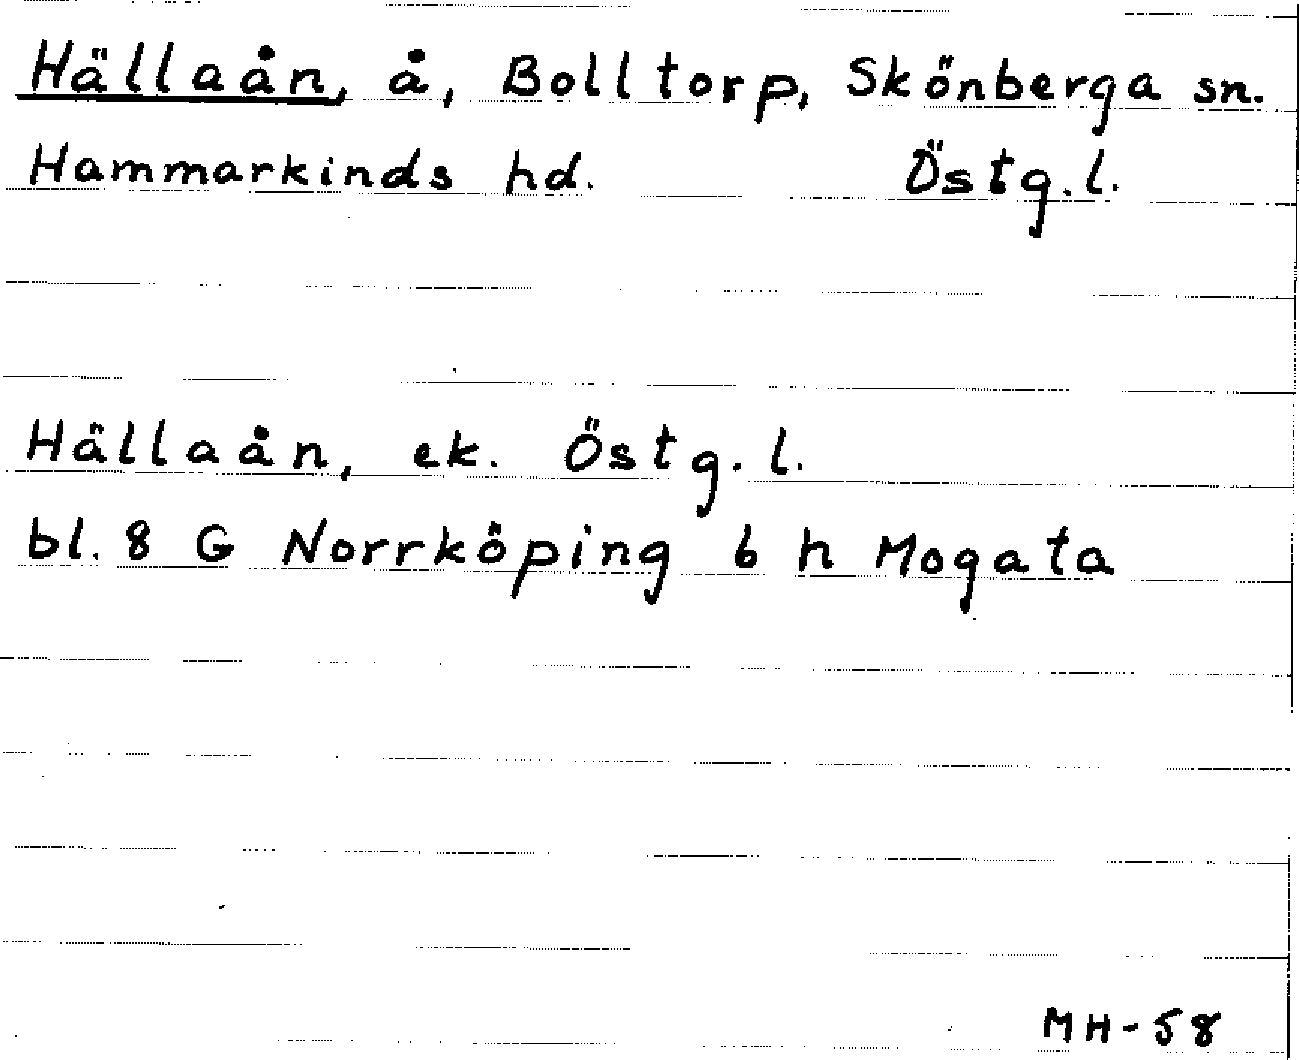 Hällaån, å, Bolltorp, Skönberga sn.
Hammarkinds hd. Östg.l.
Hällaån, ek. Östg.l.
bl. 8 G Norrköping 6 h Mogata
MH-58